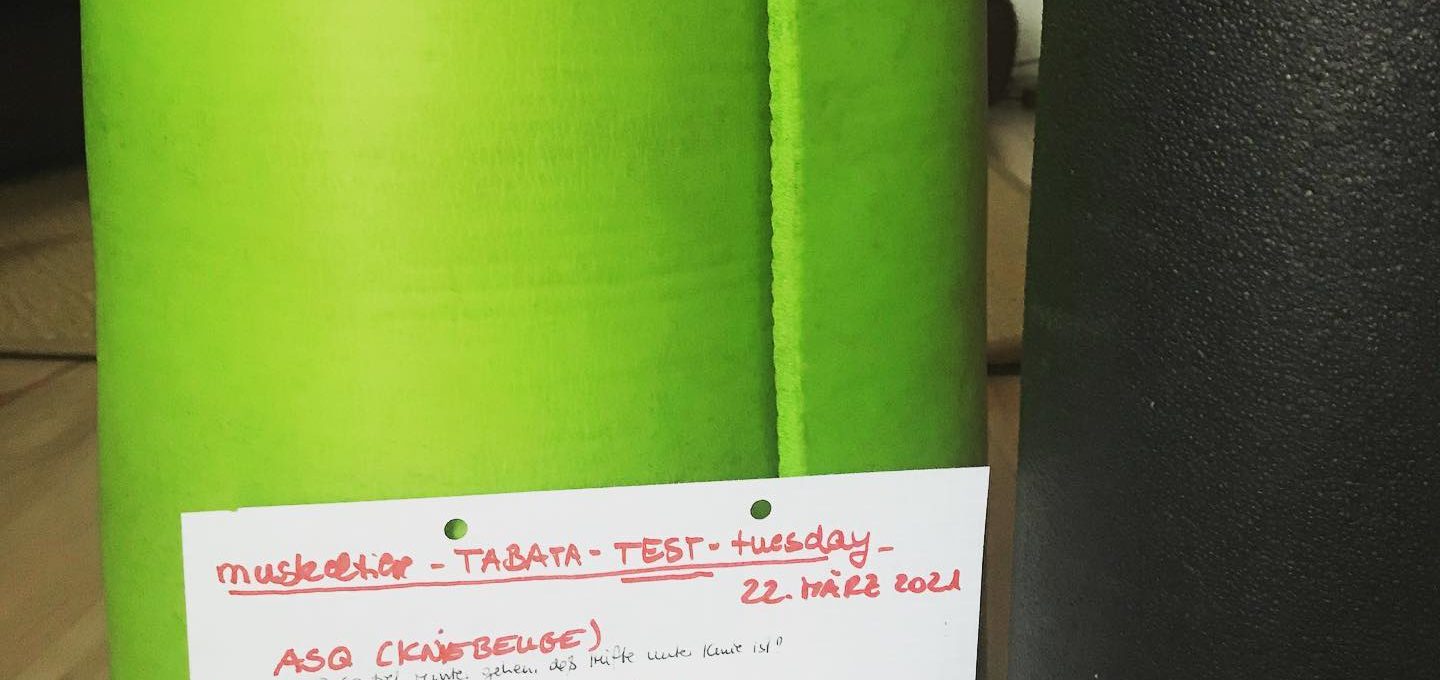 muskeltier - TABATA - TEST - tuesday -
22. MÄRZ 2021
ASQ (KNIEBEUGE)
gehen, daß Hüfte unter Knie ist"